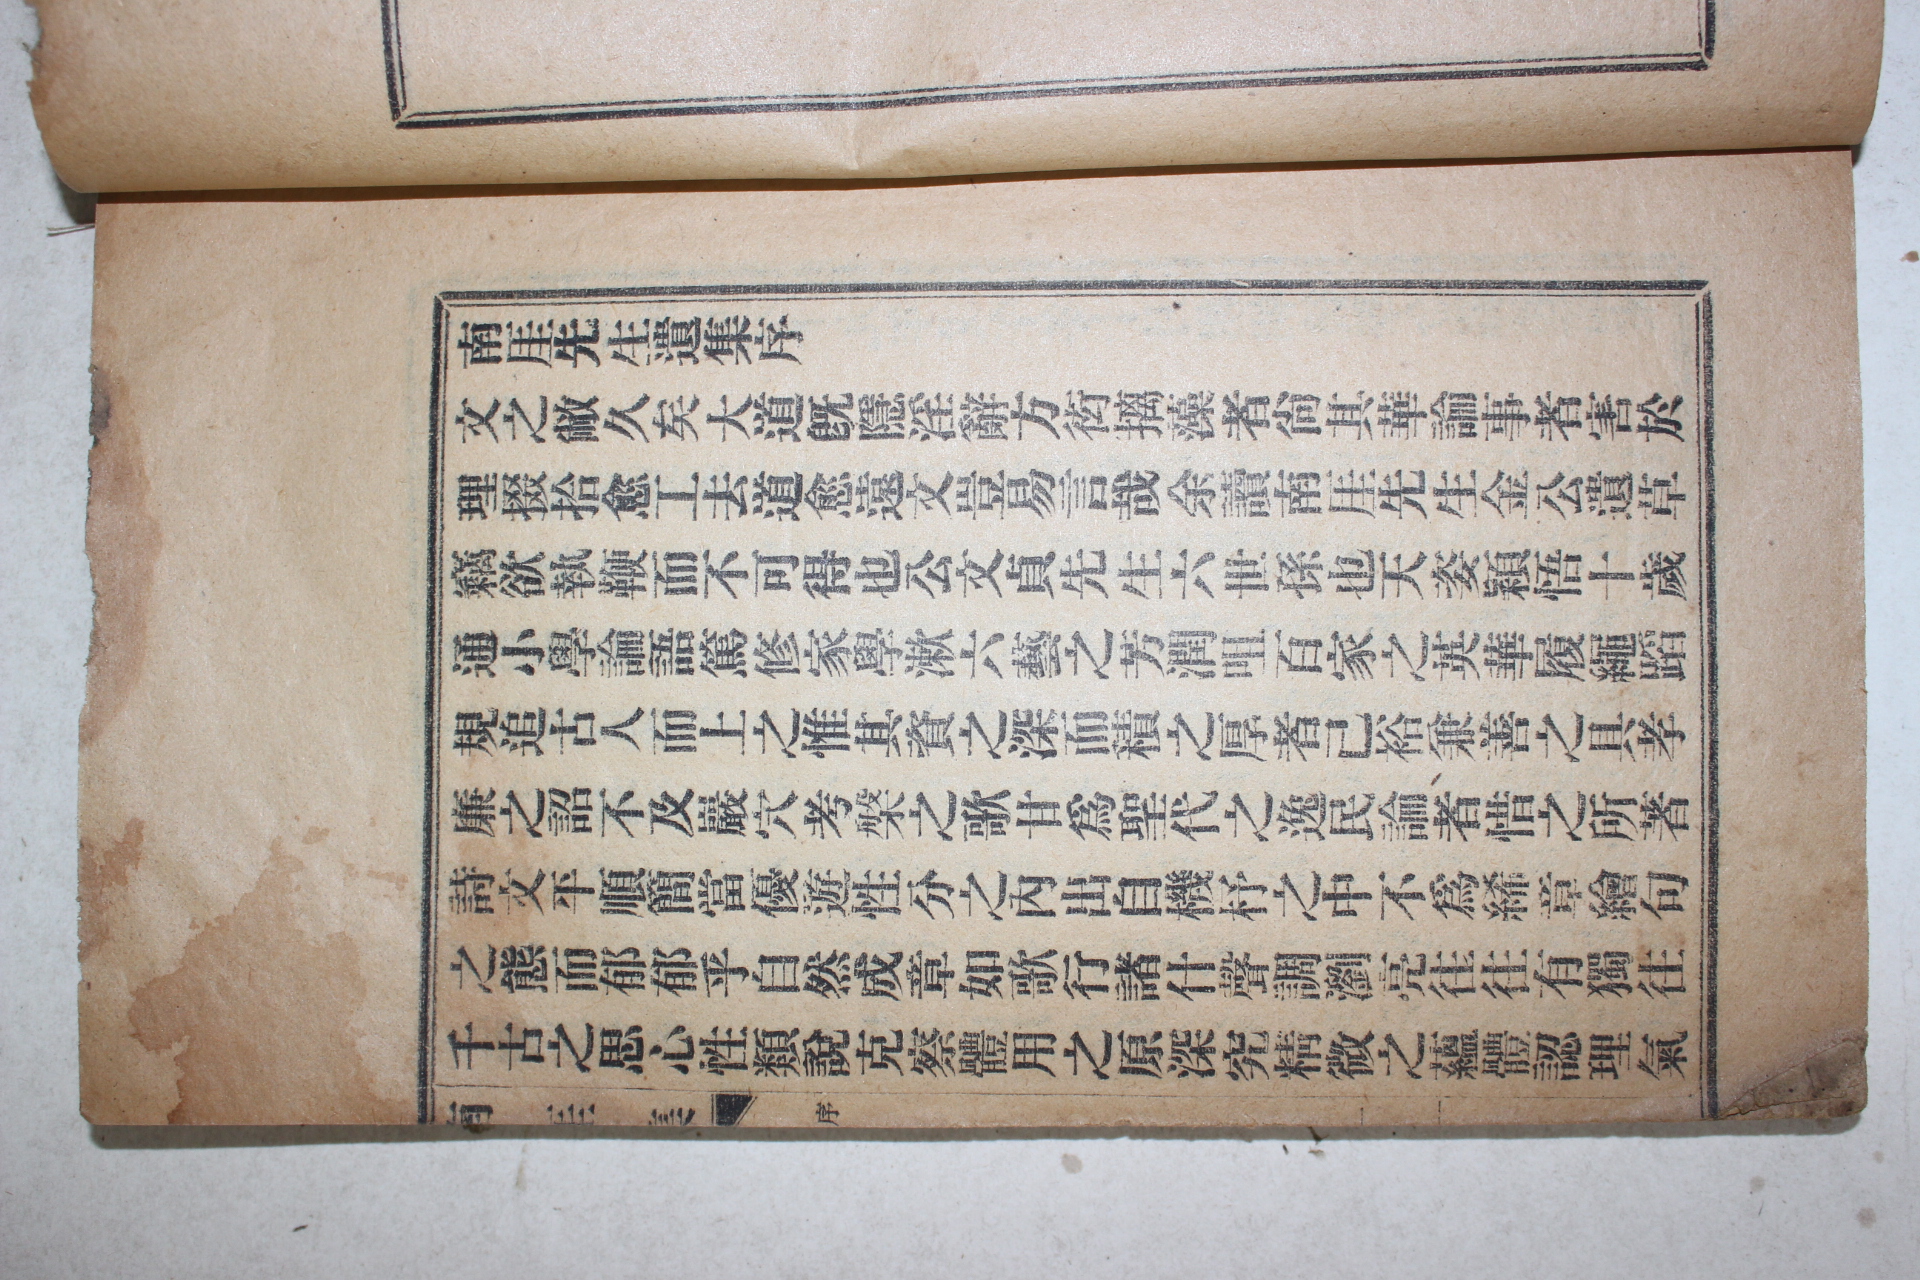 南崖先生遺集序
文之敝久矣大道旣隱淫辭方衒摛藻者尙其華論事者害於
理掇拾愈工去道愈遠文豈易言哉余讀南崖先生金公遺草
竊欲執鞭而不可得也公文貞先生六世孫也天姿穎悟十歲
通小學論語篤修家學漱六藝之芳潤咀百家之英華履繩蹈
規追古人而上之惟其資之深而積之厚者已裕兼善之具孝
廉之詔不及巖穴考槃之歌甘爲聖代之逸民論者惜之所著
詩文平順簡當優遊性分之內出自機杼之中不爲絺章繪句
之態而郁郁乎自然成章如歌行諸什聲調瀏亮往往有獨往
千古之思心性類說克察體用之原深究精微之蘊體認理氣
南崖集 序 一